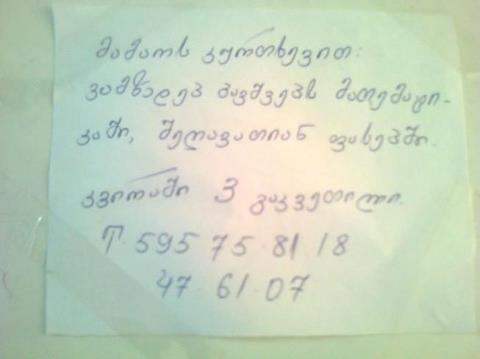 მამაოს კურთხევით:
ვამზადებ ბავშვებს მათემატი-
კაში, შეღავათიან ფასებში.
კვირაში 3 გაკვეთილი.
T 595 75 81 18
47-61-07